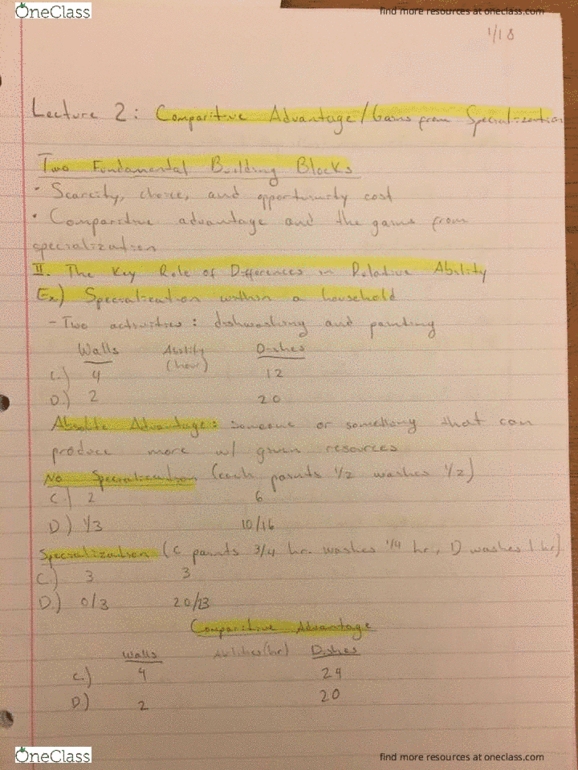 OneClass
find more resources at oneclass.com
1/18
Lecture 2: Comparitive Advantage/Gains from Specialization
Two Fundamental Building Blocks
• Scarcity, choice, and opportunity cost
• Comparitive advantage and the gains from
specialization
II. The Key Role of Differences in Relative Ability
Ex.) Specialization within a household
- Two activities: dishwashing and painting
Walls Ability Dishes
(hour)
C.) 4 12
D.) 2 20
Absolute Advantage: Someone or something that can
produce more w/ given resources
No Specialization (each paints 1/2 washes 1/2)
C.) 2 6
D.) 1/3 10/16
Specialization (C paints 3/4 hr. washes 1/4 hr, D washes 1 hr)
C.) 3 3
D.) 0/3 20/23
Comparitive Advantage
Walls (hr) Dishes
C.) 4 24
D.) 2 20
OneClass
find more resources at oneclass.com